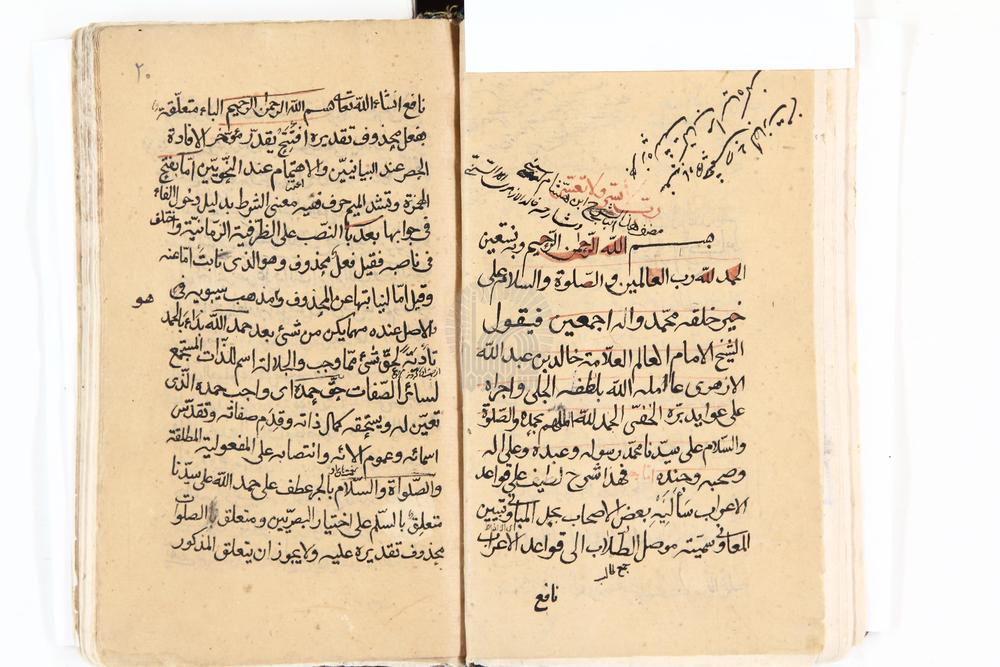 رب يسر ولا تعسر
بسم الله الرحمن الرحيم وبه نستعين
الحمد لله رب العالمين والصلوة والسلام على
خير خلقه محمد واله اجمعين فيقول
الشيخ الامام العالم العلامة خالد بن عبد الله
الازهري عامله الله بلطفه الجلي واجراه
على عوايد بره الخفي الحمد لله الملهم بحمده والصلوة
والسلام على سيدنا محمد رسوله وعبده وعلى اله
وصحبه وجنده اما بعد فهذا شرح لطيف على قواعد
الاعراب سألنيه بعض الاصحاب يحل المباني ويبين
المعاني وسميته موصل الطلاب الى قواعد الاعراب
جمع طالب
نافع
٢٠
نافع انشاء الله تعالى بسم الله الرحمن الرحيم الباء متعلقة
بفعل محذوف تقديره افتتح يقدر مؤخر الافادة
الحصر عند البيانيين والاهتمام عند النحويين اما بفتح
الهمزة وتشد الميم حرف فيه معنى الشرط بدليل دخول الفاء
في جوابها بعد بالنصب على الظرفية الزمانية واختلف
في ناصبه فقيل فعل محذوف وهو الذي نابت اما عنه
وقيل اما لنيابتها عن المحذوف وامذهب سيبويه في
هو
والاصل عنده مهما يكن من شئ بعد حمد الله بداء بالحمد
تأدية لحق شئ مما وجب والجلالة اسم للذات المستجمع
لسائر الصفات حق حمده اى واجب حمده الذى
تعين له ويستحقه كمال ذاته وقدم صفاته وتقدس
اسمائه وعموم الائه وانتصابه على المفعولية المطلقة
والصلواة والسلام بالجر عطف على حمد الله على سيدنا
متعلق بالسلم على اختيار البصريين ومتعلق الصلوات
محذوف تقديره عليه ولا يجوز ان يتعلق المذكور